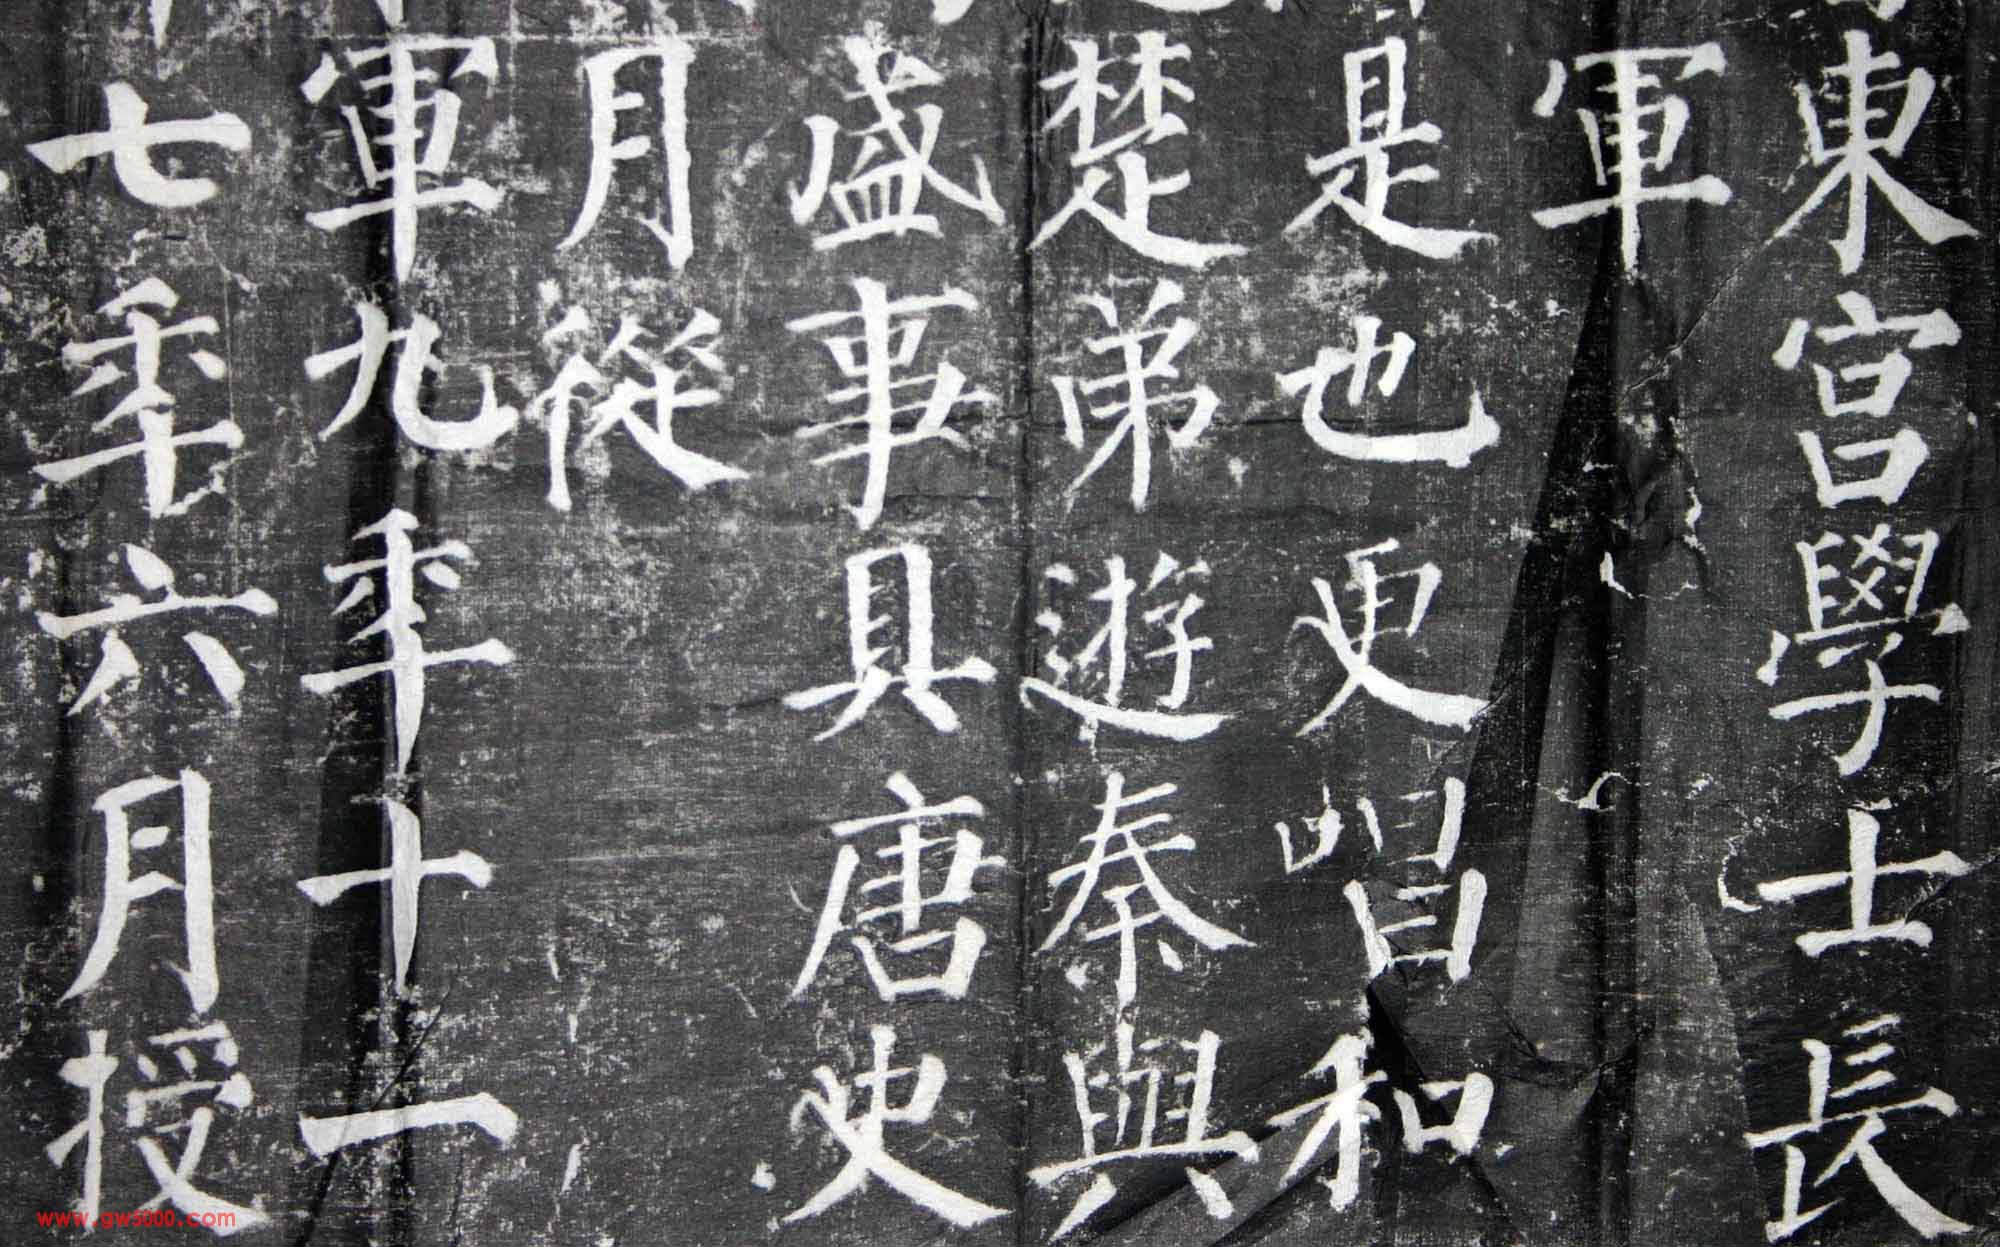 東宮學士長
軍
是也更唱和
楚弟遊秦與
盛事具唐史
月從
軍九年十一
七年六月授
www.gw5000.com